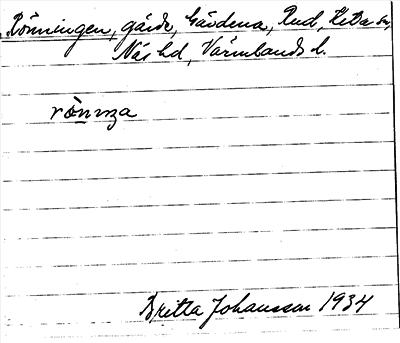 Rönningen, gärde, Gärdena, Rud, Kila sn,
Näs hd, Värmlands l.
rönnza
Britta Johansson 1934